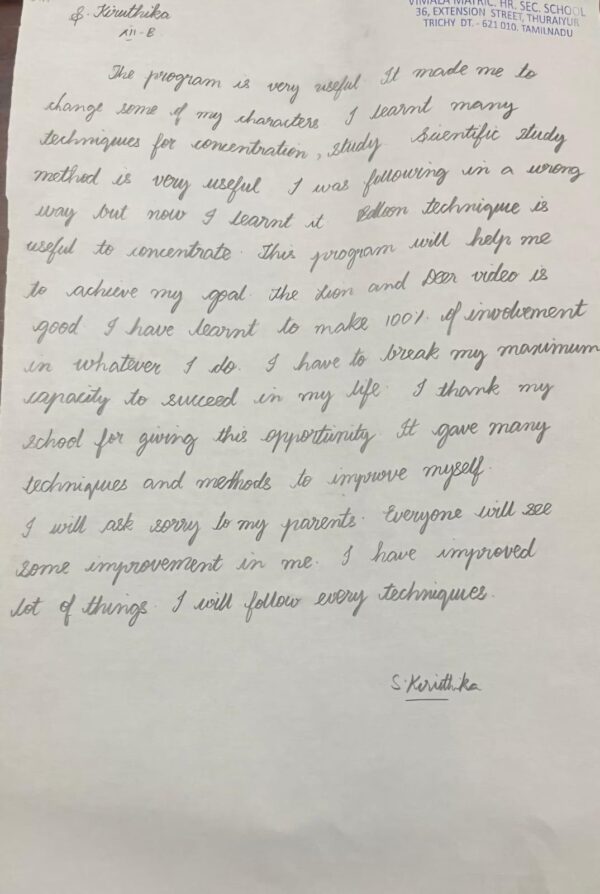 S. Kiruthika
XII - B
VIMALA MATRIC. HR. SEC. SCHOOL
36, EXTENSION STREET, THURAIYUR
TRICHY DT. - 621 010. TAMILNADU
The program is very useful. It made me to
change some of my characters. I learnt many
techniques for concentration, study. Scientific study
method is very useful. I was following in a wrong
way but now I learnt it. technique is
useful to concentrate. This program will help me
to achieve my goal. The Lion and Deer video is
good. I have learnt to make 100% of involvement
in whatever I do. I have to break my maximum
capacity to succeed in my life. I thank my
school for giving this opportunity. It gave many
techniques and methods to improve myself.
I will ask sorry to my parents. Everyone will see
some improvement in me. I have improved
lot of things. I will follow every techniques.
S. Kiruthika